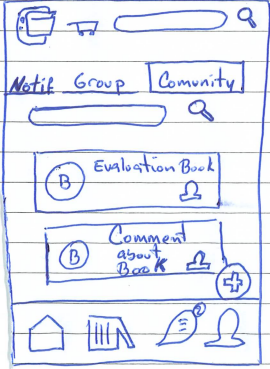 Notif Group Comunity
B Evaluation Book
B Comment
about
Book
2